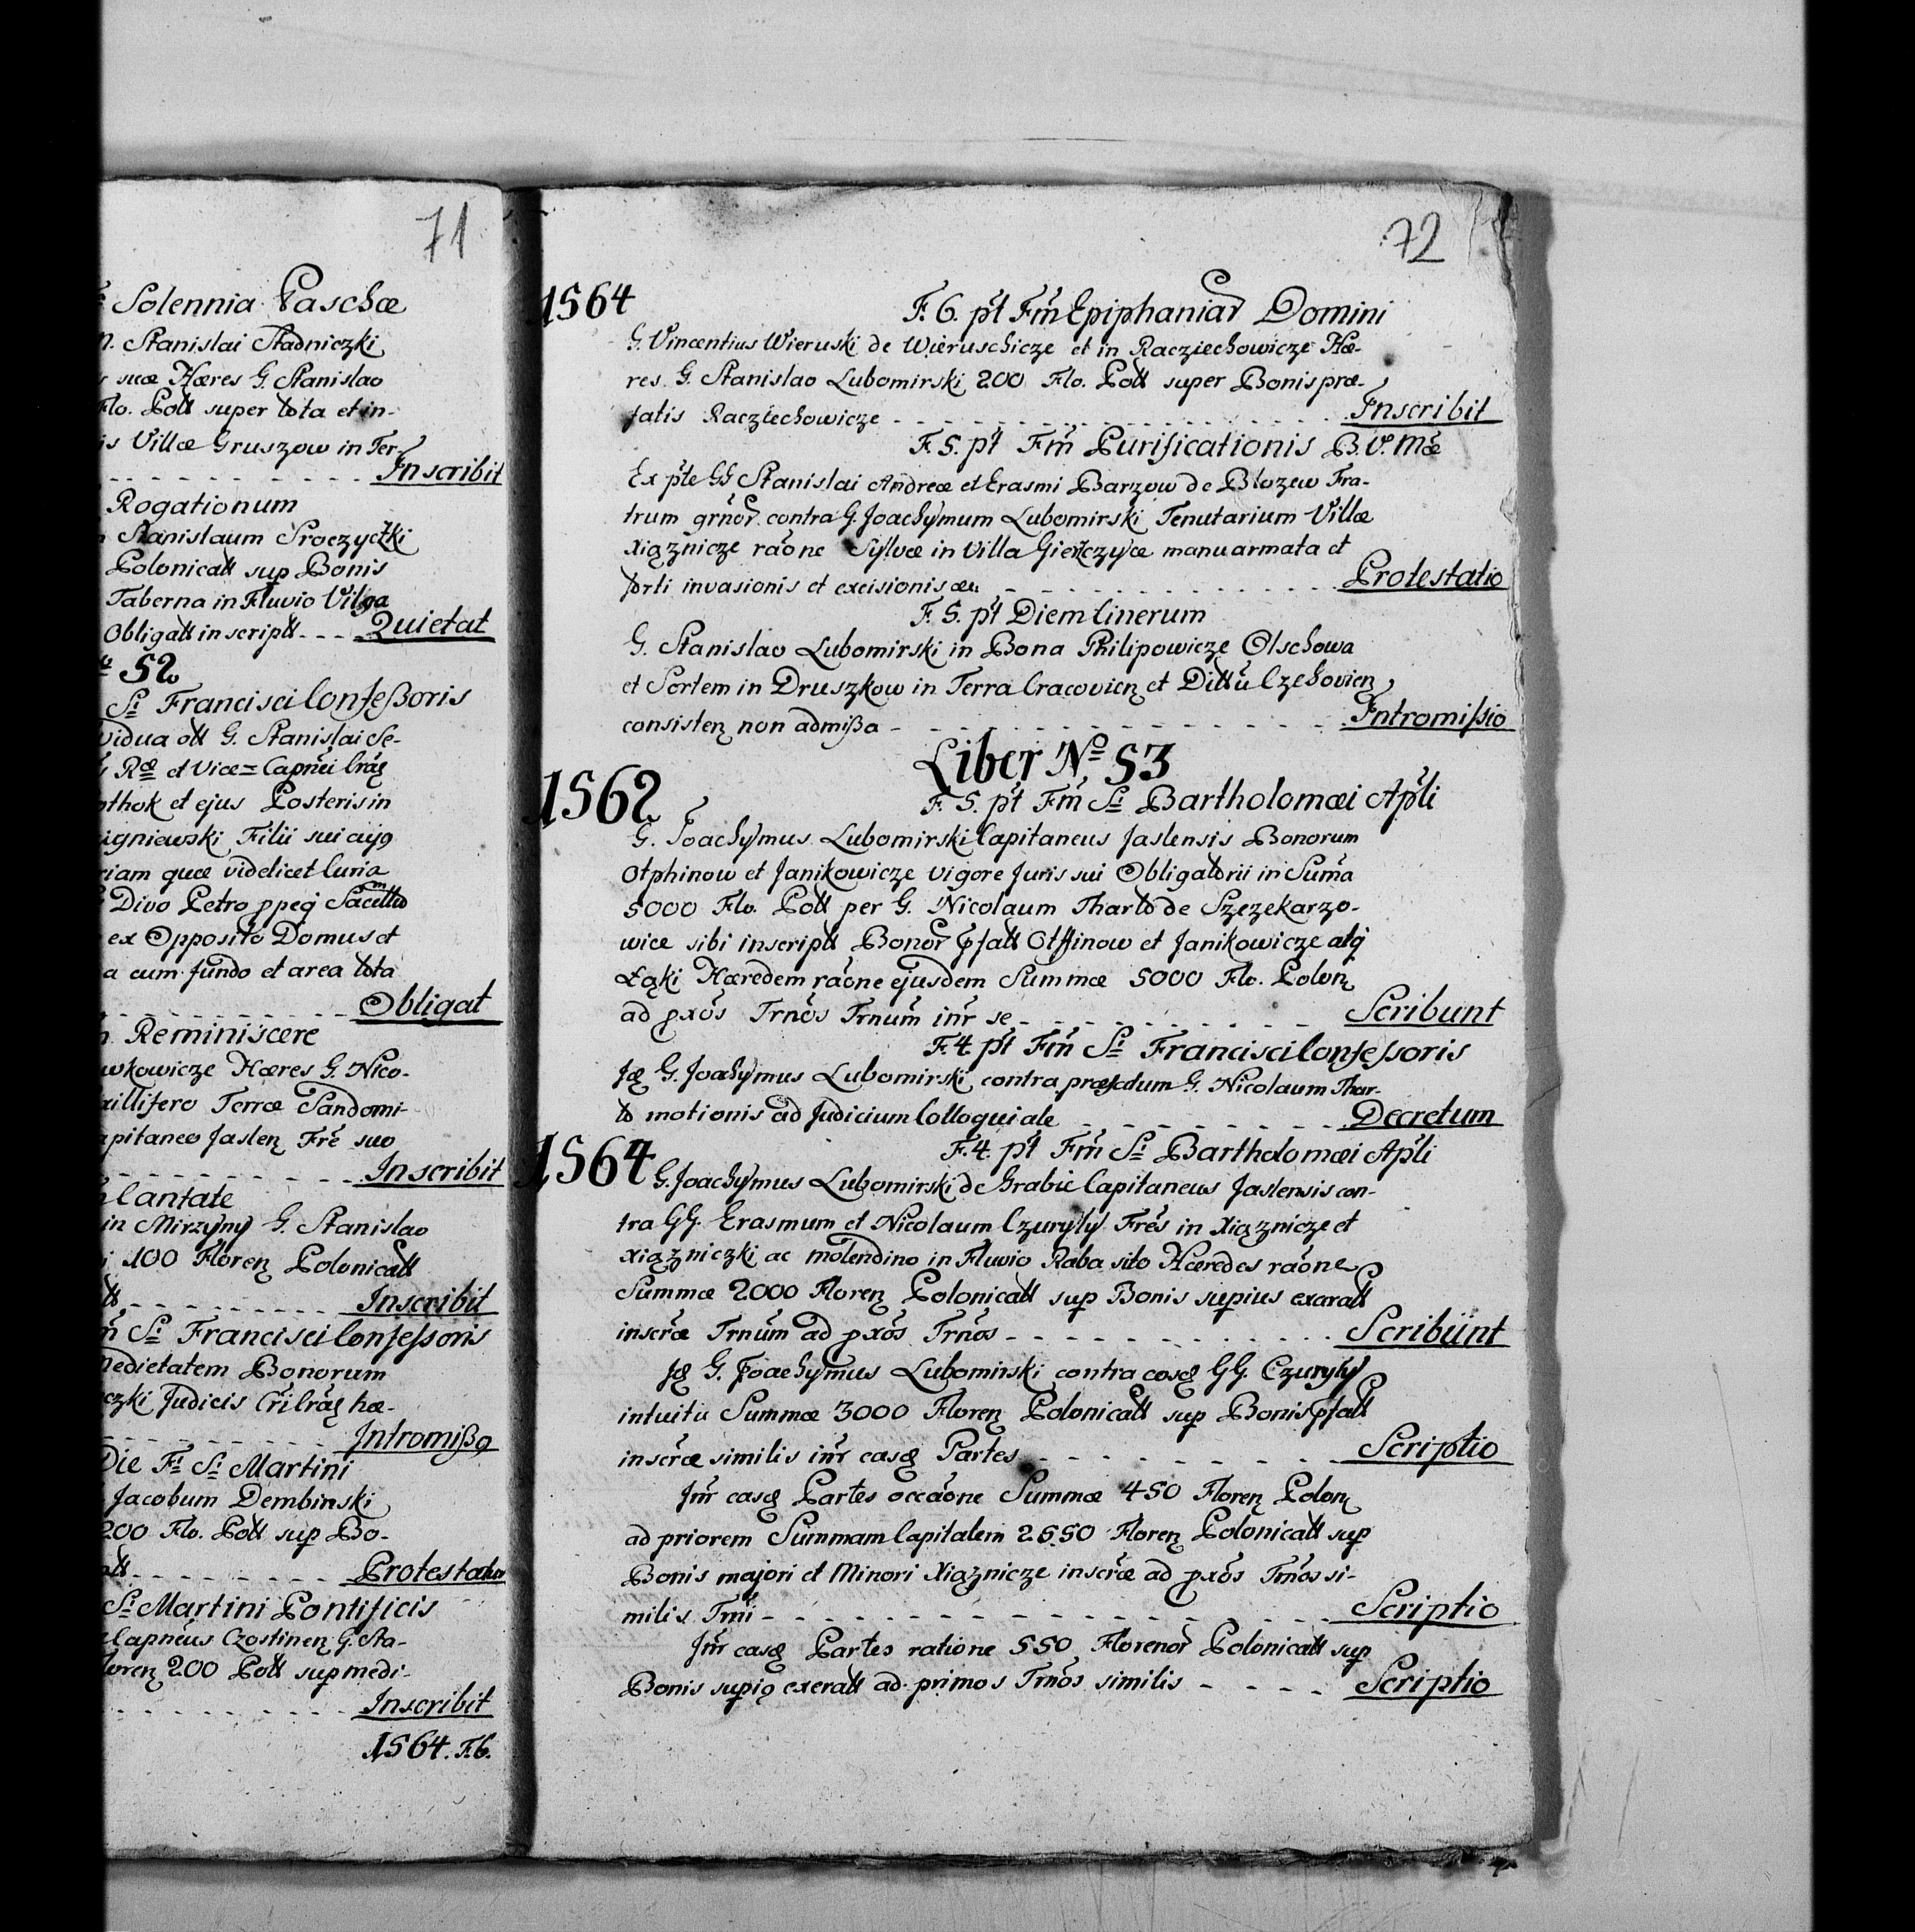 71
Solennia Paschæ
n. Stanislai Stadniczki
suæ Hæres G. Stanislao
Flo. Poll super tota et in-
is Villæ Gruszow in Ter-
Inscribit
Rogationum
Stanislaum Sroczyczki
Polonicall sup Bonis
Taberna in Fluvio Vilga
Obligatt inscriptt - - - Quietat
52
Si Francisci Confeßoris
vidua olt G. Stanislai Se-
Ræ et Vice=Capnei Crac
othok et ejus Posteris in
igniewski Filii sui cujg
riam quæ videlicet Curia
Divo Petro ppeq Sacello
ex Opposito Domus et
a cum fundo et area tota
Obligat
Reminiscere
wkowicze Hæres G. Nico-
xillifero Terræ Sandomi-
apitaneo Jaslen Fre suo
Inscribit
Cantate
in Mirzyny G. Stanislao
i 100 Floren Polonicatt
Inscribit
Si Francisci Confessoris
Medietatem Bonorum
czki Judicis Cri Crac hæ-
Intromißo
Die Fi Si Martini
Jacobum Dembinski
200 Flo. Poll sup Bo-
Protestatur
Si Martini Pontificis
Capneus Czostinen G. Sta-
loren 200 Poll sup medi-
Inscribit
1564. F.6.
72
1564 F. 6. pt Fm Epiphaniar Domini
G. Vincentius Wieruski de Wieruschicze et in Racziechowicze Hæ-
res G. Stanislao Lubomirski 200 Flo. Poll super Bonis præ-
fatis Racziechowicze - - - Inscribit
F. 5. pt Fm Purificationis B. V. Mæ
Ex pte GG Stanislai Andreæ et Erasmi Barzow de Blozew Fra-
trum grnor contra G. Joachymum Lubomirski Tenutarium Villæ
Xiąznicze raone Sylvæ in Villa Gierczyce manu armata et
forti invasionis et excisionis - - - Protestatio
F. 5. pt Diem Cinerum
G. Stanislao Lubomirski in Bona Philipowicze Olschowa
et Sortem in Druszkow in Terra Cracovien et Dittu Czchovien
consisten non admißa - - - Intromissio
Liber No 53
1562 F. 5. pt Fm Si Bartholomæi Apli
G. Joachymus Lubomirski Capitaneus Jaslensis Bonorum
Otphinow et Janikowicze vigore Juris sui Obligatorii in Suma
5000 Flo. Poll per G. Nicolaum Tharlo de Szczekarzo-
wice sibi inscriptt Bonor pfatt Otffinow et Janikowicze atq
Łąki Hæredem raone ejusdem Summæ 5000 Flo. Polon
ad pxos Trnos Trnum inr se - - - Scribunt
F. 4. pt Fm Si Francisci Confessoris
Jd G. Joachymus Lubomirski contra præfatum G. Nicolaum Thar-
lo motionis ad Judicium Colloquiale - - - Decretum
1564 F. 4. pt Fm Si Bartholomæi Apli
G. Joachymus Lubomirski de Grabie Capitaneus Jaslensis con-
tra GG. Erasmum et Nicolaum Czuryly Fres in Xiąznicze et
Xiązniczki ac molendino in Fluvio Raba sito Hæredes raone
Summæ 2000 Floren Polonicatt sup Bonis supius exeratt
inscræ Trnum ad pxos Trnos - - - Scribunt
Jd G. Joachymus Lubomirski contra eosd GG. Czuryly
intuitu Summæ 3000 Floren Polonicatt sup Bonis pfatt
inscræ similis inr easd Partes - - - Scriptio
Jnr easd Partes occaone Summæ 450 Floren Polon
ad priorem Summam Capitalem 2550 Floren Polonicatt sup
Bonis majori et Minori Xiąznicze inscræ ad pxos Trnos si-
milis Trni - - - Scriptio
Jnr easd Partes ratione 550 Florenor Polonicatt sup
Bonis supig exeratt ad primos Trnos similis - - - - Scriptio